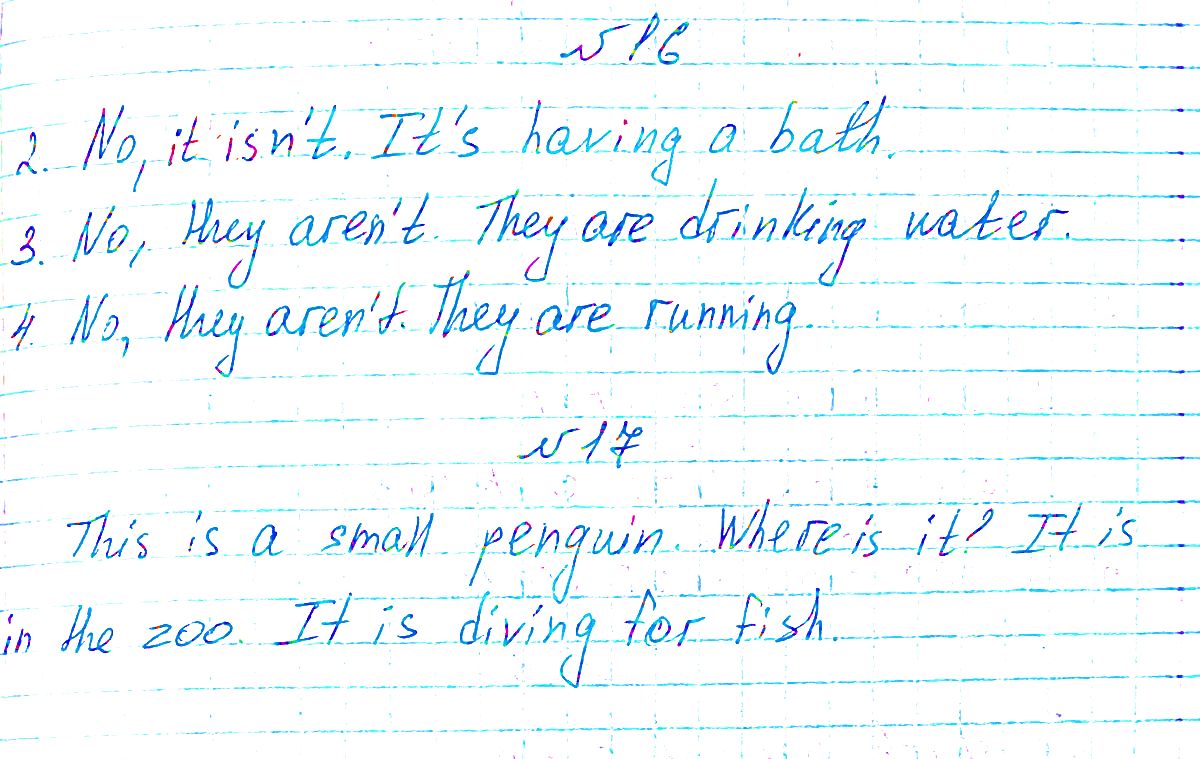 №16
2. No, it isn't. It's having a bath.
3. No, they aren't. They are drinking water.
4. No, they aren't. They are running.
№17
This is a small penguin. Where is it? It is
in the zoo. It is diving for fish.